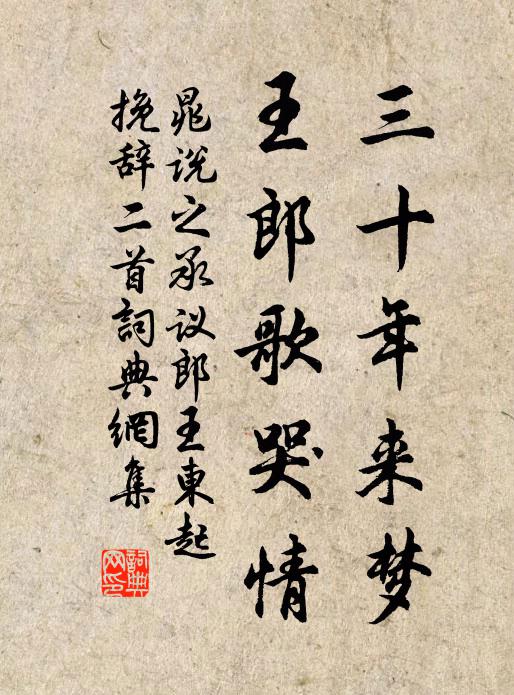 三十年来梦
王郎歌哭情
晁说之承议郎王東起
挽辞二首詞典網集
詞典
网印